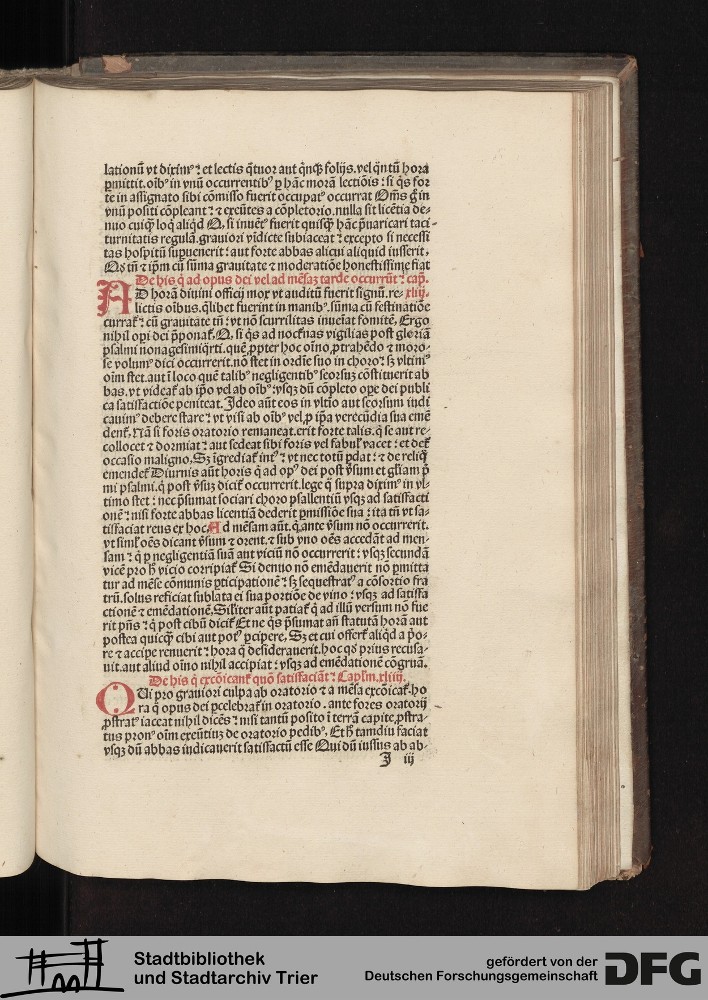 lationū vt diximꝰ: et lectis q̄tuor aut q̄nqꝫ folijs. vel q̄ntū hora
ꝑmittit. oībꝰ in vnū occurrentibꝰ ꝑ hāc morā lectiōis: si q̄s for
te in assignato sibi cōmisso fuerit occupatꝰ occurrat Om̄s g̊ in
vnū positi cōpleant: ⁊ exeūtes a cōpletorio. nulla sit licētia de-
nuo cuiq̄ꝫ loq̄ aliqd̄ Q, si inuētꝰ fuerit quisqꝫ hāc p̄uaricari taci-
turnitatis regulā. grauiori vīdicte subiaceat: excepto si necessi
tas hospitū supuenerit: aut forte abbas alicui aliquid iusserit,
Qd̓ tn̄ ⁊ ip̄m cū sūma grauitate ⁊ moderatiōe honestissime fiat
De his q̄ ad opus dei vel ad mēsaꝫ tarde occurrūt: cap̄.
AD horā diuini officij mox vt auditū fuerit signū. re- xliij.
lictis oībus. q̄libet fuerint in manibꝰ. sūma cū festinatiōe
currat̄: cū grauitate tn̄: vt nō scurrilitas inueīat fomitē, Ergo
nihil opi dei p̄ponat̄, Q, si q̄s ad nocturnas vigilias post gloriā
psalmi nonagesimiq̄rti. quē ꝓpter hoc oīno ꝓtrahēdo ⁊ moro-
se volumꝰ dici occurrerit. nō stet in ordīe suo in choro: sꝫ vltimꝰ
oīm stet. aut ī loco quē talibꝰ negligentibꝰ seorsuꝫ cōstituerit ab
bas. vt videat̄ ab ip̄o vel ab oībꝰ: vsqꝫ dū cōpleto ope dei publi
ca satisfactiōe peniteat. Ideo aūt eos in vltīo aut seorsum iudi
cauimꝰ debere stare: vt visi ab oībꝰ vel ꝓ ip̄a verecūdia sua emē
dent̄, Nā si foris oratorio remaneat. erit forte talis. q̄ se aut re-
collocet ⁊ dormiat: aut sedeat sibi foris vel fabulꝭ vacet: et det̄
occasio maligno, Sꝫ īgrediat̄ intꝰ: vt nec totū ꝑdat: ⁊ de reliq̄
emendet̄ Diurnis aūt horis q̄ ad opꝰ dei post v̓sum et gl̓iam p̄
mi psalmi. q̄ post v̓suꝫ dicit̄ occurrerit. lege q̄ supra diximꝰ in vl-
timo stet: nec p̄sumat sociari choro psallentiū vsqꝫ ad satisfacti
onē: nisi forte abbas licentiā dederit ꝑmissiōe sua: ita tn̄ vt sa-
tisfaciat reus ex hoc. Ad mēsam aūt. q̄ ante v̓sum nō occurrerit.
vt simul̓ oēs dicant v̓sum ⁊ orent. ⁊ sub vno oēs accedāt ad men-
sam: q̄ ꝑ negligentiā suā aut viciū nō occurrerit: vsqꝫ secundā
vicē pro h̓ vicio corripiat̄ Si denuo nō emēdauerit nō ꝑmitta
tur ad mēse cōmunis ꝑticipationē: sꝫ sequestratꝰ a cōsortio fra
trū. solus reficiat sublata ei sua portiōe de vino: vsqꝫ ad satisfa
ctionē ⁊ emēdationē, Sil̓iter aūt patiat̄ q̄ ad illū versum nō fue
rit p̄ns: q̄ post cibū dicit̄ Et ne q̄s p̄sumat an̄ statutā horā aut
postea quicq̄ cibi aut potꝰ ꝑcipere, Sꝫ et cui offert̄ aliqd̄ a p̓o-
re ⁊ accipe renuerit: hora q̄ desiderauerit. hoc qd̓ prius recusa-
uit. aut aliud oīno nihil accipiat: vsqꝫ ad emēdationē cōgruā.
De his q̄ excōicant̄ quō satisfaciāt: Capl̓m. xliiij.
QUi pro grauiori culpa ab oratorio ⁊ a mēsa excōicat̄. ho
ra q̄ opus dei ꝑcelebrat̄ in oratorio. ante fores oratorij
ꝓstratꝰ iaceat nihil dicēs: nisi tantū posito ī terrā capite. ꝓstra-
tus pronꝰ oīm exeūtiuꝫ de oratorio pedibꝰ, Et h̓ tamdiu faciat
vsqꝫ dū abbas iudicauerit satisfactū esse Qui dū iussus ab ab-
I iij
Stadtbibliothek
und Stadtarchiv Trier
gefördert von der
Deutschen Forschungsgemeinschaft
DFG